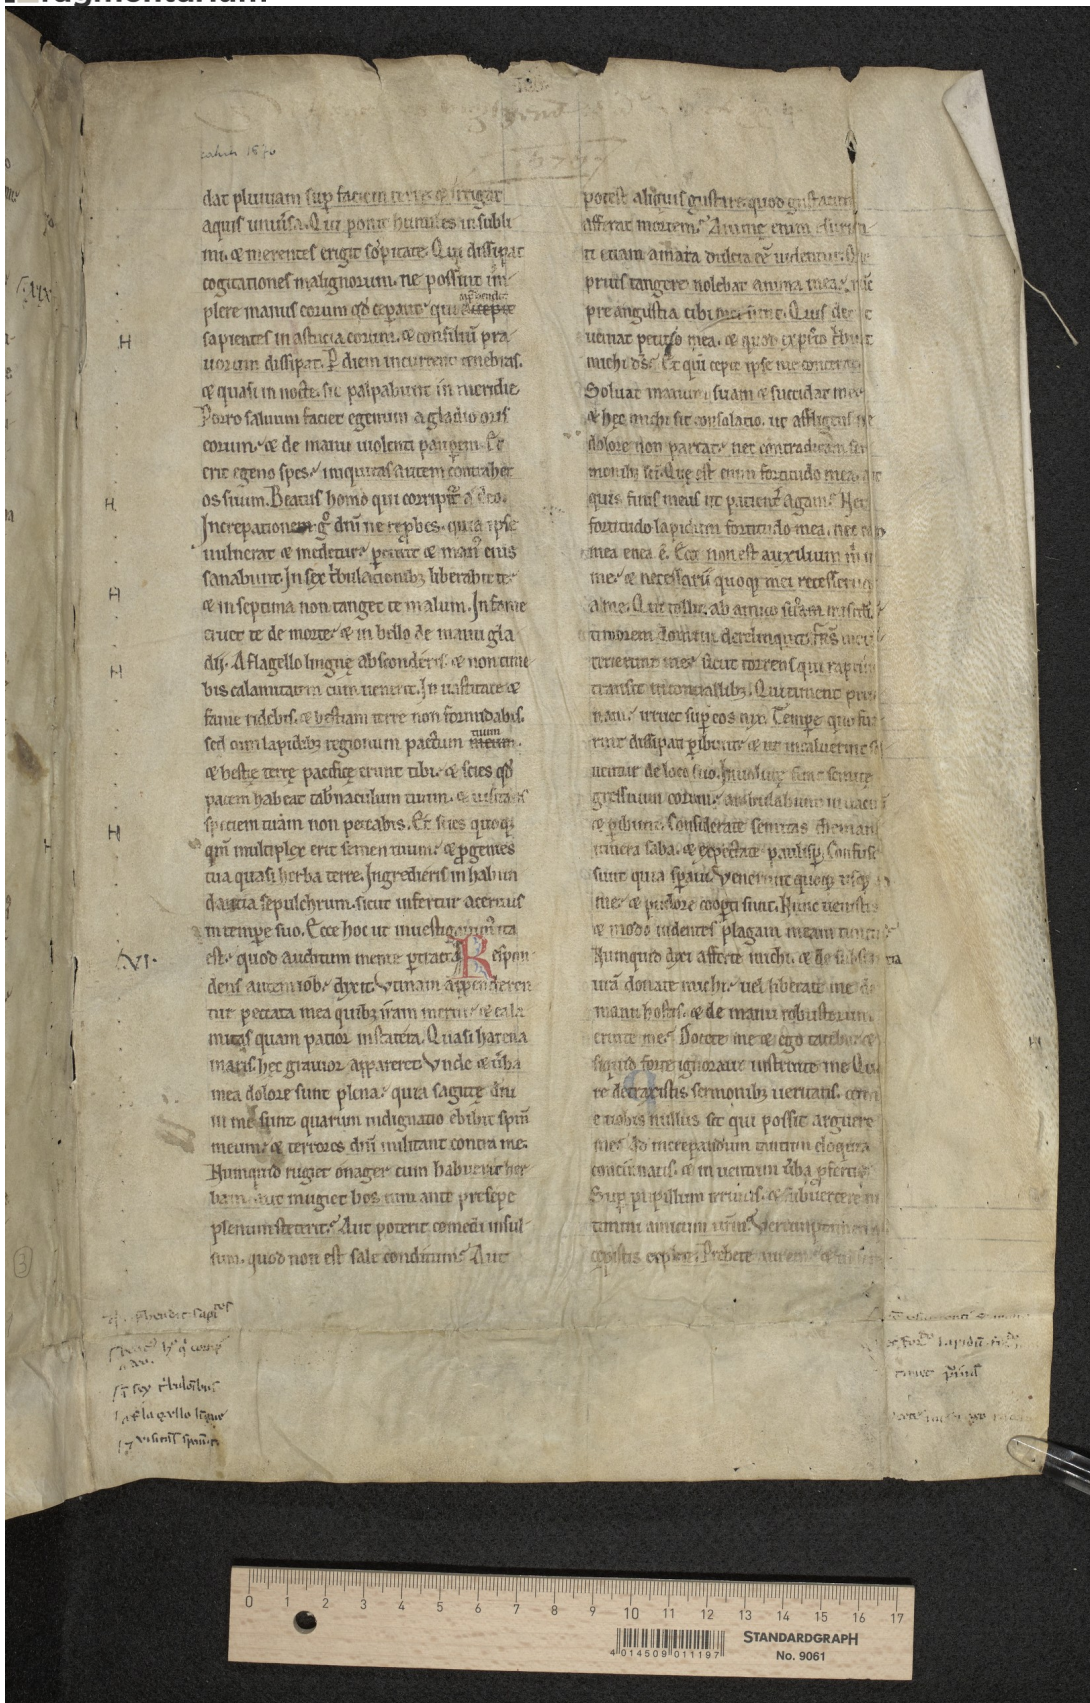 dat pluuiam sup faciem terre & irrigat
aquis uniu'sa. Qui ponit humiles in subli
mi. & merentes erigit sospitate. Qui dissipat
cogitationes malignorum. ne possint im
plere manus eorum qd ceperant. qui app'hendit
sapientes in astucia eorum. & consiliu pra
uorum dissipat. P diem incurrent tenebras.
& quasi in nocte. sic palpabunt in meridie
Porro saluum faciet egenum a gladio oris
eorum. & de manu uiolenti pauperem. Et
erit egeno spes. iniquitas autem contrahet
os suum. Beatus homo qui corripit a deo.
Increpationem g dni ne reprobes. quia ipse
uulnerat & medetur. percutit & man' eius
sanabunt. In sex t'bulationib; liberabit te.
& in septima non tanget te malum. In fame
eruet te de morte. & in bello de manu gla
dij. A flagello lingue absconderis. & non time
bis calamitatem cum uenerit. In uastitate &
fame ridebis. & bestiam terre non formidabis.
sed cum lapidib; regionum pactum tuum.
& bestie terre pacifice erunt tibi. & scies qd
pacem habeat tab'naculum tuum. & uisitans
speciem tuam non peccabis. Et scies quoq;
qm multiplex erit semen tuum. & progenies
tua quasi herba terre. Ingredieris in habun
dantia sepulchrum. sicut infertur aceruus
in tempe suo. Ecce hoc ut inuestigauim' ita
VI.
est. quod auditum mente pertracta. Respon
dens autem iob. dixit. Vtinam appenderen
tur peccata mea quib; iram merui. & cala
mitas quam patior in statera. Quasi harena
maris. hec grauior appareret. Vnde & u'ba
mea dolore sunt plena. quia sagitte dni
in me sunt quarum indignatio ebibit spm
meum. & terrores dni militant contra me.
Numquid rugiet onager cum habuerit her
bam. aut mugiet bos cum ante presepe
plenum steterit. Aut poterit comedi insul
sum. quod non est sale conditum. Aut
potest aliquis gustare. quod gustatum
afferat mortem. Anime enim esurien
ti etiam amara dulcia ee uidentur. Que
prius tangere nolebat anima mea. nc
pre angustia cibi mei sunt. Quis det
ueniat petitio mea. & quod expecto t'buat
michi ds. Et qui cepit ipse me conterat.
Soluat manum suam & succidat me.
& hec michi sit consolatio. ut affligens me
dolore non parcat. nec contradicam ser
monib; sci. Que est enim fortitudo mea. aut
quis finis meus ut pacient' agam. Nec
fortitudo lapidum fortitudo mea. nec caro
mea enea e. Ecce non est auxilium m' in
me. & necessarii quoq; mei recesserunt
a me. Qui tollit ab amico suo misericordiam
timorem domini derelinquit. frs mei
terierunt me. sicut torrens qui raptim
transit in conuallib;. Qui timent prui
nam. irruet sup eos nix. Tempe quo fue
rint dissipati pibunt. & ut incaluerint sol
uentur de loco suo. Inuolute sunt semite
gressuum eorum. ambulabunt in uacuu
& pibunt. Considerate semitas theman
itinera saba. & expectate paulisp. Confusi
sunt quia spaui. Venerunt quoq; usq;
me. & pudore coopti sunt. Nunc uenistis
& modo uidentes plagam meam timetis
Numquid dixi afferte michi. & de substantia
ura donate michi. uel liberate me de
manu hostis. & de manu robustorum
eruite me. Docete me & ego tacebo. &
siquid forte ignoraui instruite me. Qua
re detraxistis sermonib; ueritatis. cum
e uobis nullus sit qui possit arguere
me. Ad increpandum tantum eloquia
concinnatis. & in uentum u'ba pfertis.
Sup pupillum irruitis. & subuertere ni
timini amicum urm. Verumptamen
cepistis explete. Prebete aurem &
H
H
H
H
H
H
STANDARDGRAPH
No. 9061
4 014509 011197
0 1 2 3 4 5 6 7 8 9 10 11 12 13 14 15 16 17